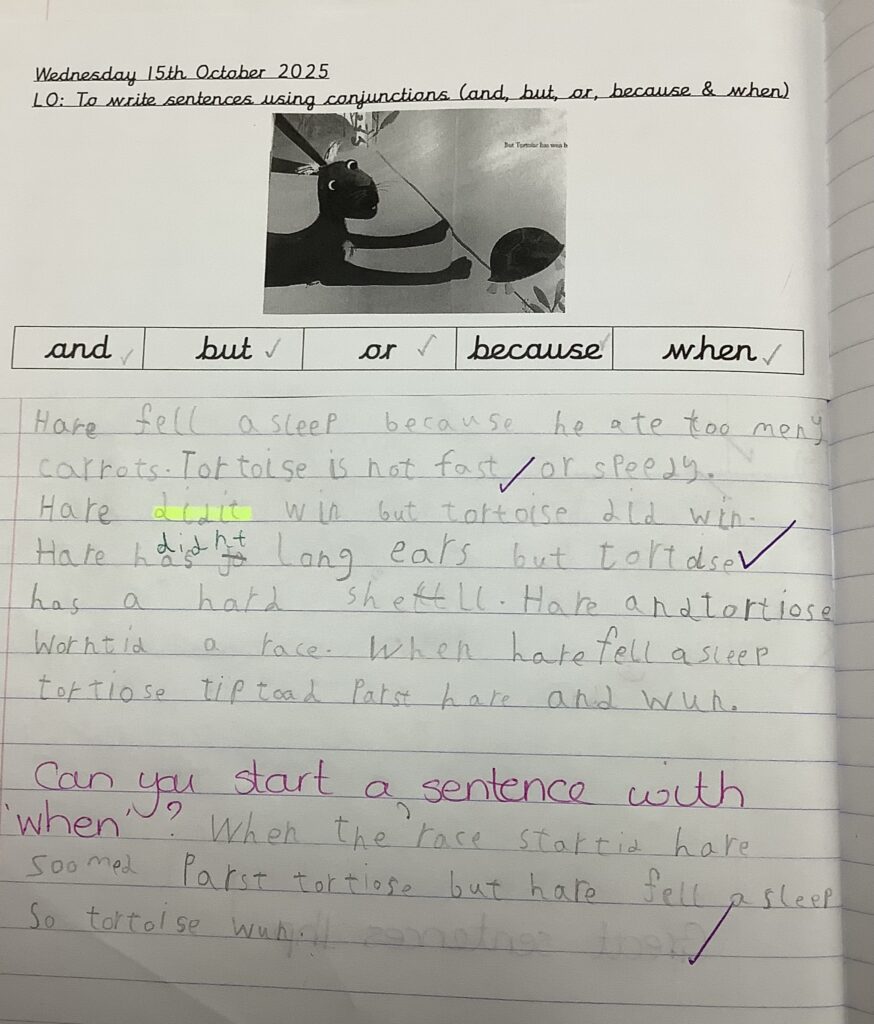 Wednesday 15th October 2025
LO: To write sentences using conjunctions (and, but, or, because & when)
But Tortoise has won b
and but or because when
Hare fell a sleep because he ate too meny
carrots. Tortoise is not fast or speedy.
Hare didit win but tortoise did win.
didnt
Hare has long ears but tortose
has a hard shell. Hare and tortiose
worntid a race. When hare fell a sleep
tortiose tip toad Parst hare and wun.
Can you start a sentence with
'when'? When the race startid hare
soomed Parst tortiose but hare fell a sleep
So tortoise wun.